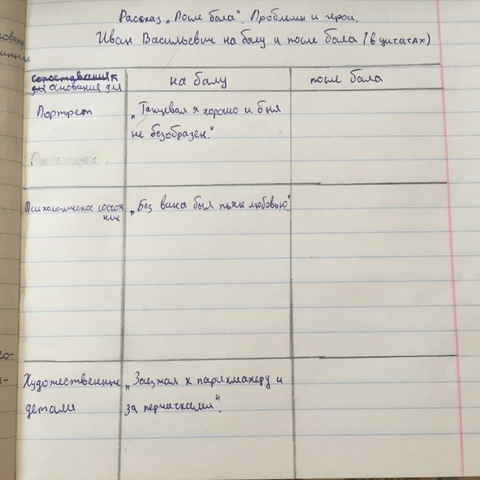 Рассказ "После бала". Проблемы и герои.
Иван Васильевич на балу и после бала (в цитатах)
основания для
на балу
после бала
Портрет
„Танцевал я хорошо и был
не безобразен."
Психологическое состоя
ние
„Без вина был пьян любовью"
Художественные
детали
„Заезжал к парикмахеру и
за перчатками".